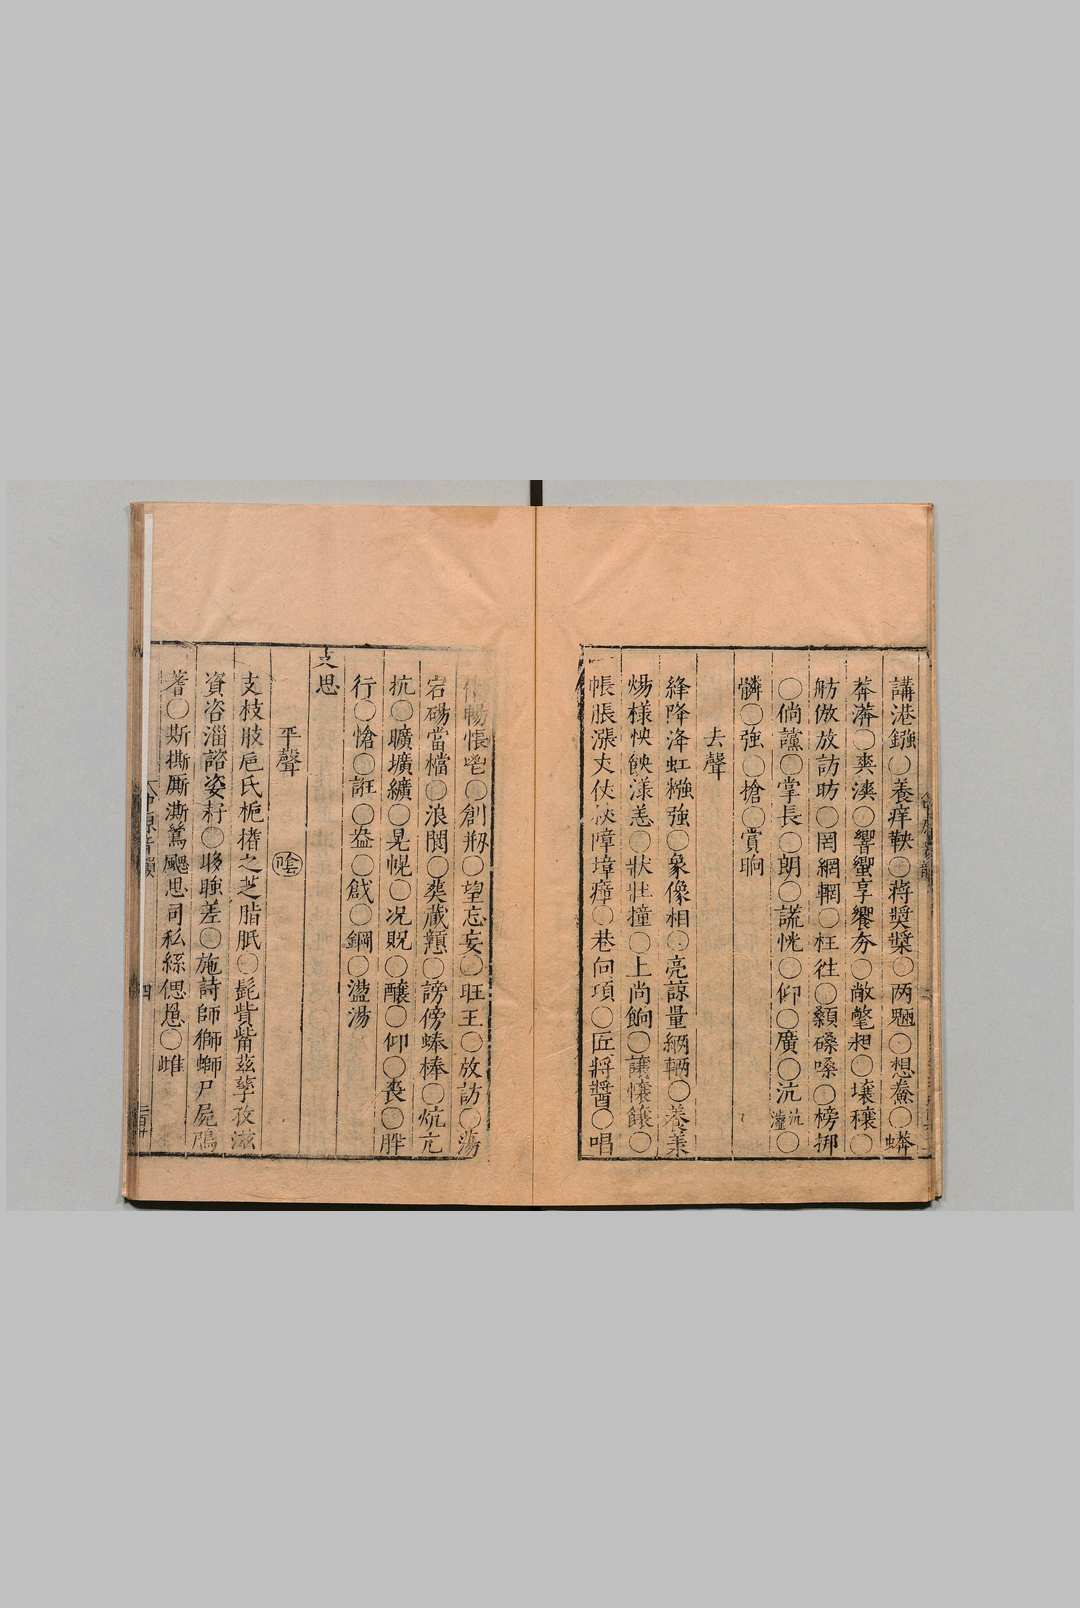 講港鏹○養痒鞅○蔣奬槳○两魎○想鯗○蟒
莽漭○爽漺○響蠁享饗夯○敞氅昶○壤穰○
舫倣放訪昉○罔網輞○枉徃○顙磉嗓○榜掷
○倘讜○掌長○朗○謊恍○仰○廣○沆沆瀣○
髒○強○搶○賞晌
去聲
絳降洚虹糨強○象像相○亮諒量緉輛○養羕
煬様怏餀漾恙○狀壯撞○上尚餉○讓懹饟○
帳脹漲丈仗杖障墇瘴○巷向項○匠將醬○唱
暢悵鬯○創剙○望忘妄○旺王○放訪○蕩
宕碭當檔○浪閬○葬藏○謗傍蚌棒○炕亢
抗○曠壙纊○晃愰○况貺○釀○仰○喪○胖
行○愴○誑○盎○戧○鋼○盪湯
支思
平聲 陰
支枝肢巵氏梔榰之芝脂胝○髭貲觜茲孳孜滋
資咨淄諮姿耔○眵差○施詩師獅螄尸屍鳲
蓍○斯撕厮澌鷥颸思司私絲偲罳○雌
中原音韻
四